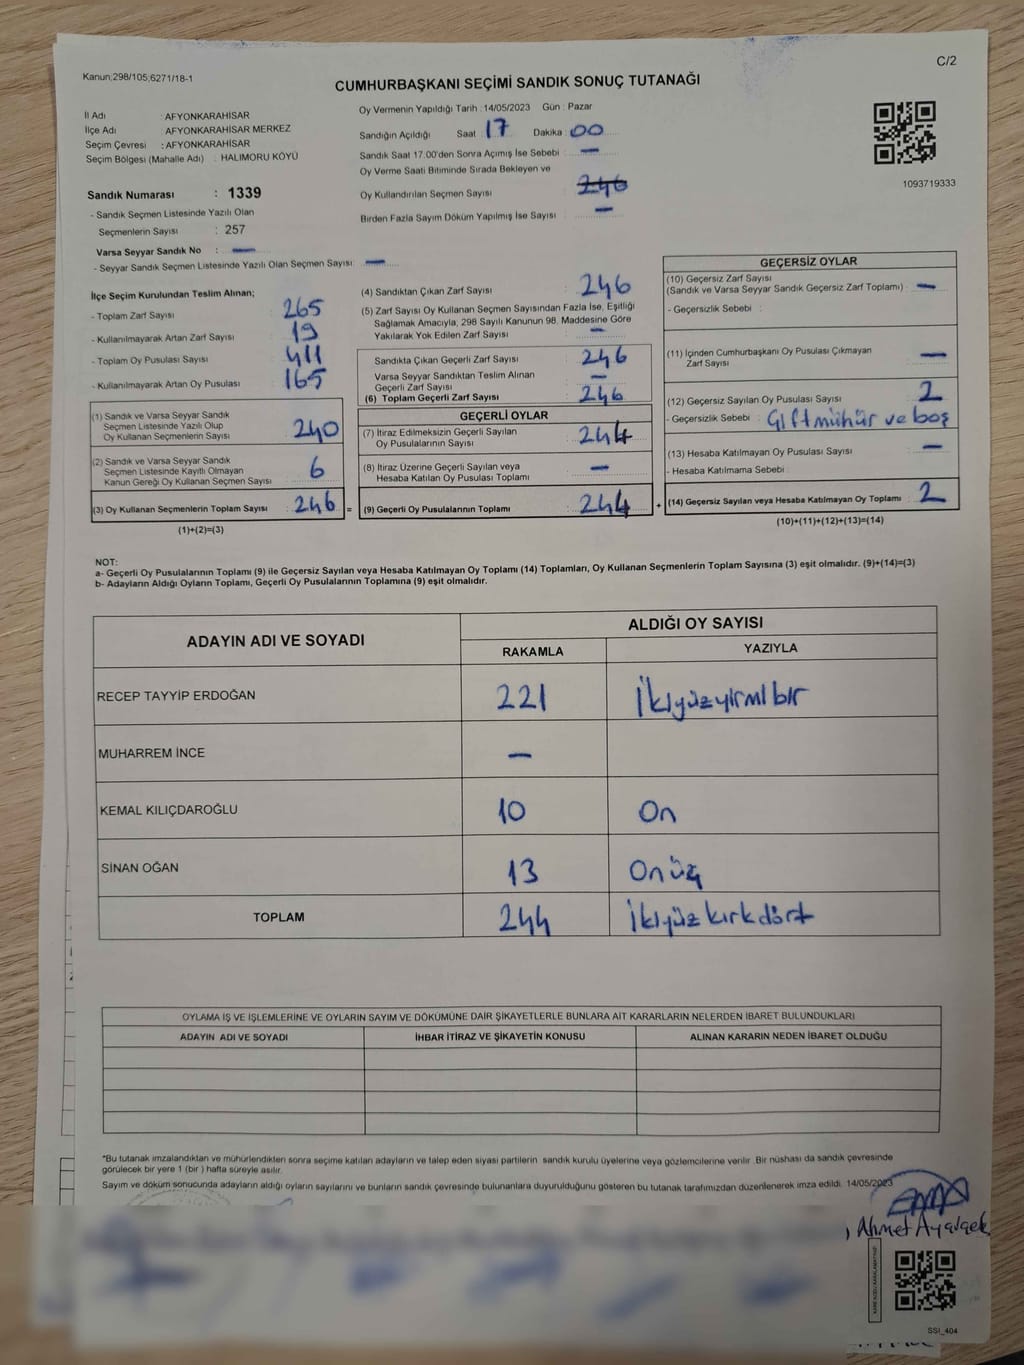 Kanun;298/105,6271/18-1
C/2
CUMHURBAŞKANI SEÇİMİ SANDIK SONUÇ TUTANAĞI
İl Adı : AFYONKARAHİSAR
İlçe Adı AFYONKARAHİSAR MERKEZ
Seçim Çevresi : AFYONKARAHİSAR
Seçim Bölgesi (Mahalle Adı) : HALIMORU KÖYÜ
Sandık Numarası : 1339
- Sandık Seçmen Listesinde Yazılı Olan
Seçmenlerin Sayısı : 257
Varsa Seyyar Sandık No : —
- Seyyar Sandık Seçmen Listesinde Yazılı Olan Seçmen Sayısı: —
Oy Vermenin Yapıldığı Tarih :14/05/2023 Gün : Pazar
Sandığın Açıldığı Saat 17 Dakika : 00
Sandık Saat 17.00'den Sonra Açımış İse Sebebi : —
Oy Verme Saati Bitiminde Sırada Bekleyen ve
Oy Kullandırılan Seçmen Sayısı 246
Birden Fazla Sayım Döküm Yapılmış İse Sayısı : —
1093719333
İlçe Seçim Kurulundan Teslim Alınan;
- Toplam Zarf Sayısı : 265
- Kullanılmayarak Artan Zarf Sayısı : 19
- Toplam Oy Pusulası Sayısı : 411
- Kullanılmayarak Artan Oy Pusulası : 165
(1) Sandık ve Varsa Seyyar Sandık
Seçmen Listesinde Yazılı Olup
Oy Kullanan Seçmenlerin Sayısı : 240
(2) Sandık ve Varsa Seyyar Sandık
Seçmen Listesinde Kayıtlı Olmayan
Kanun Gereği Oy Kullanan Seçmen Sayısı : 6
(3) Oy Kullanan Seçmenlerin Toplam Sayısı : 246 =
(1)+(2)=(3)
(4) Sandıktan Çıkan Zarf Sayısı : 246
(5) Zarf Sayısı Oy Kullanan Seçmen Sayısından Fazla İse, Eşitliği
Sağlamak Amacıyla, 298 Sayılı Kanunun 98. Maddesine Göre
Yakılarak Yok Edilen Zarf Sayısı : —
Sandıkta Çıkan Geçerli Zarf Sayısı : 246
Varsa Seyyar Sandıktan Teslim Alınan
Geçerli Zarf Sayısı : —
(6) Toplam Geçerli Zarf Sayısı : 246
GEÇERLİ OYLAR
(7) İtiraz Edilmeksizin Geçerli Sayılan
Oy Pusulalarının Sayısı : 244
(8) İtiraz Üzerine Geçerli Sayılan veya
Hesaba Katılan Oy Pusulası Toplamı : —
(9) Geçerli Oy Pusulalarının Toplamı : 244 +
GEÇERSİZ OYLAR
(10) Geçersiz Zarf Sayısı
(Sandık ve Varsa Seyyar Sandık Geçersiz Zarf Toplamı) : —
- Geçersizlik Sebebi :
(11) İçinden Cumhurbaşkanı Oy Pusulası Çıkmayan
Zarf Sayısı : —
(12) Geçersiz Sayılan Oy Pusulası Sayısı : 2
- Geçersizlik Sebebi : Çift mühür ve boş
(13) Hesaba Katılmayan Oy Pusulası Sayısı : —
- Hesaba Katılmama Sebebi
(14) Geçersiz Sayılan veya Hesaba Katılmayan Oy Toplamı : 2
(10)+(11)+(12)+(13)=(14)
NOT:
a- Geçerli Oy Pusulalarının Toplamı (9) ile Geçersiz Sayılan veya Hesaba Katılmayan Oy Toplamı (14) Toplamları, Oy Kullanan Seçmenlerin Toplam Sayısına (3) eşit olmalıdır. (9)+(14)=(3)
b- Adayların Aldığı Oyların Toplamı, Geçerli Oy Pusulalarının Toplamına (9) eşit olmalıdır.
ADAYIN ADI VE SOYADI ALDIĞI OY SAYISI
RAKAMLA YAZIYLA
RECEP TAYYİP ERDOĞAN 221 İkiyüzyirmibir
MUHARREM İNCE —
KEMAL KILIÇDAROĞLU 10 On
SİNAN OĞAN 13 Onüç
TOPLAM 244 İkiyüzkırkdört
OYLAMA İŞ VE İŞLEMLERİNE VE OYLARIN SAYIM VE DÖKÜMÜNE DAİR ŞİKAYETLERLE BUNLARA AİT KARARLARIN NELERDEN İBARET BULUNDUKLARI
ADAYIN ADI VE SOYADI İHBAR İTİRAZ VE ŞİKAYETİN KONUSU ALINAN KARARIN NEDEN İBARET OLDUĞU
*Bu tutanak imzalandıktan ve mühürlendikten sonra seçime katılan adayların ve talep eden siyasi partilerin sandık kurulu üyelerine veya gözlemcilerine verilir .Bir nüshası da sandık çevresinde
görülecek bir yere 1 (bir ) hafta süreyle asılır.
Sayım ve döküm sonucunda adayların aldığı oyların sayılarını ve bunların sandık çevresinde bulunanlara duyurulduğunu gösteren bu tutanak tarafımızdan düzenlenerek imza edildi. 14/05/2023
Ahmet
SSI_404